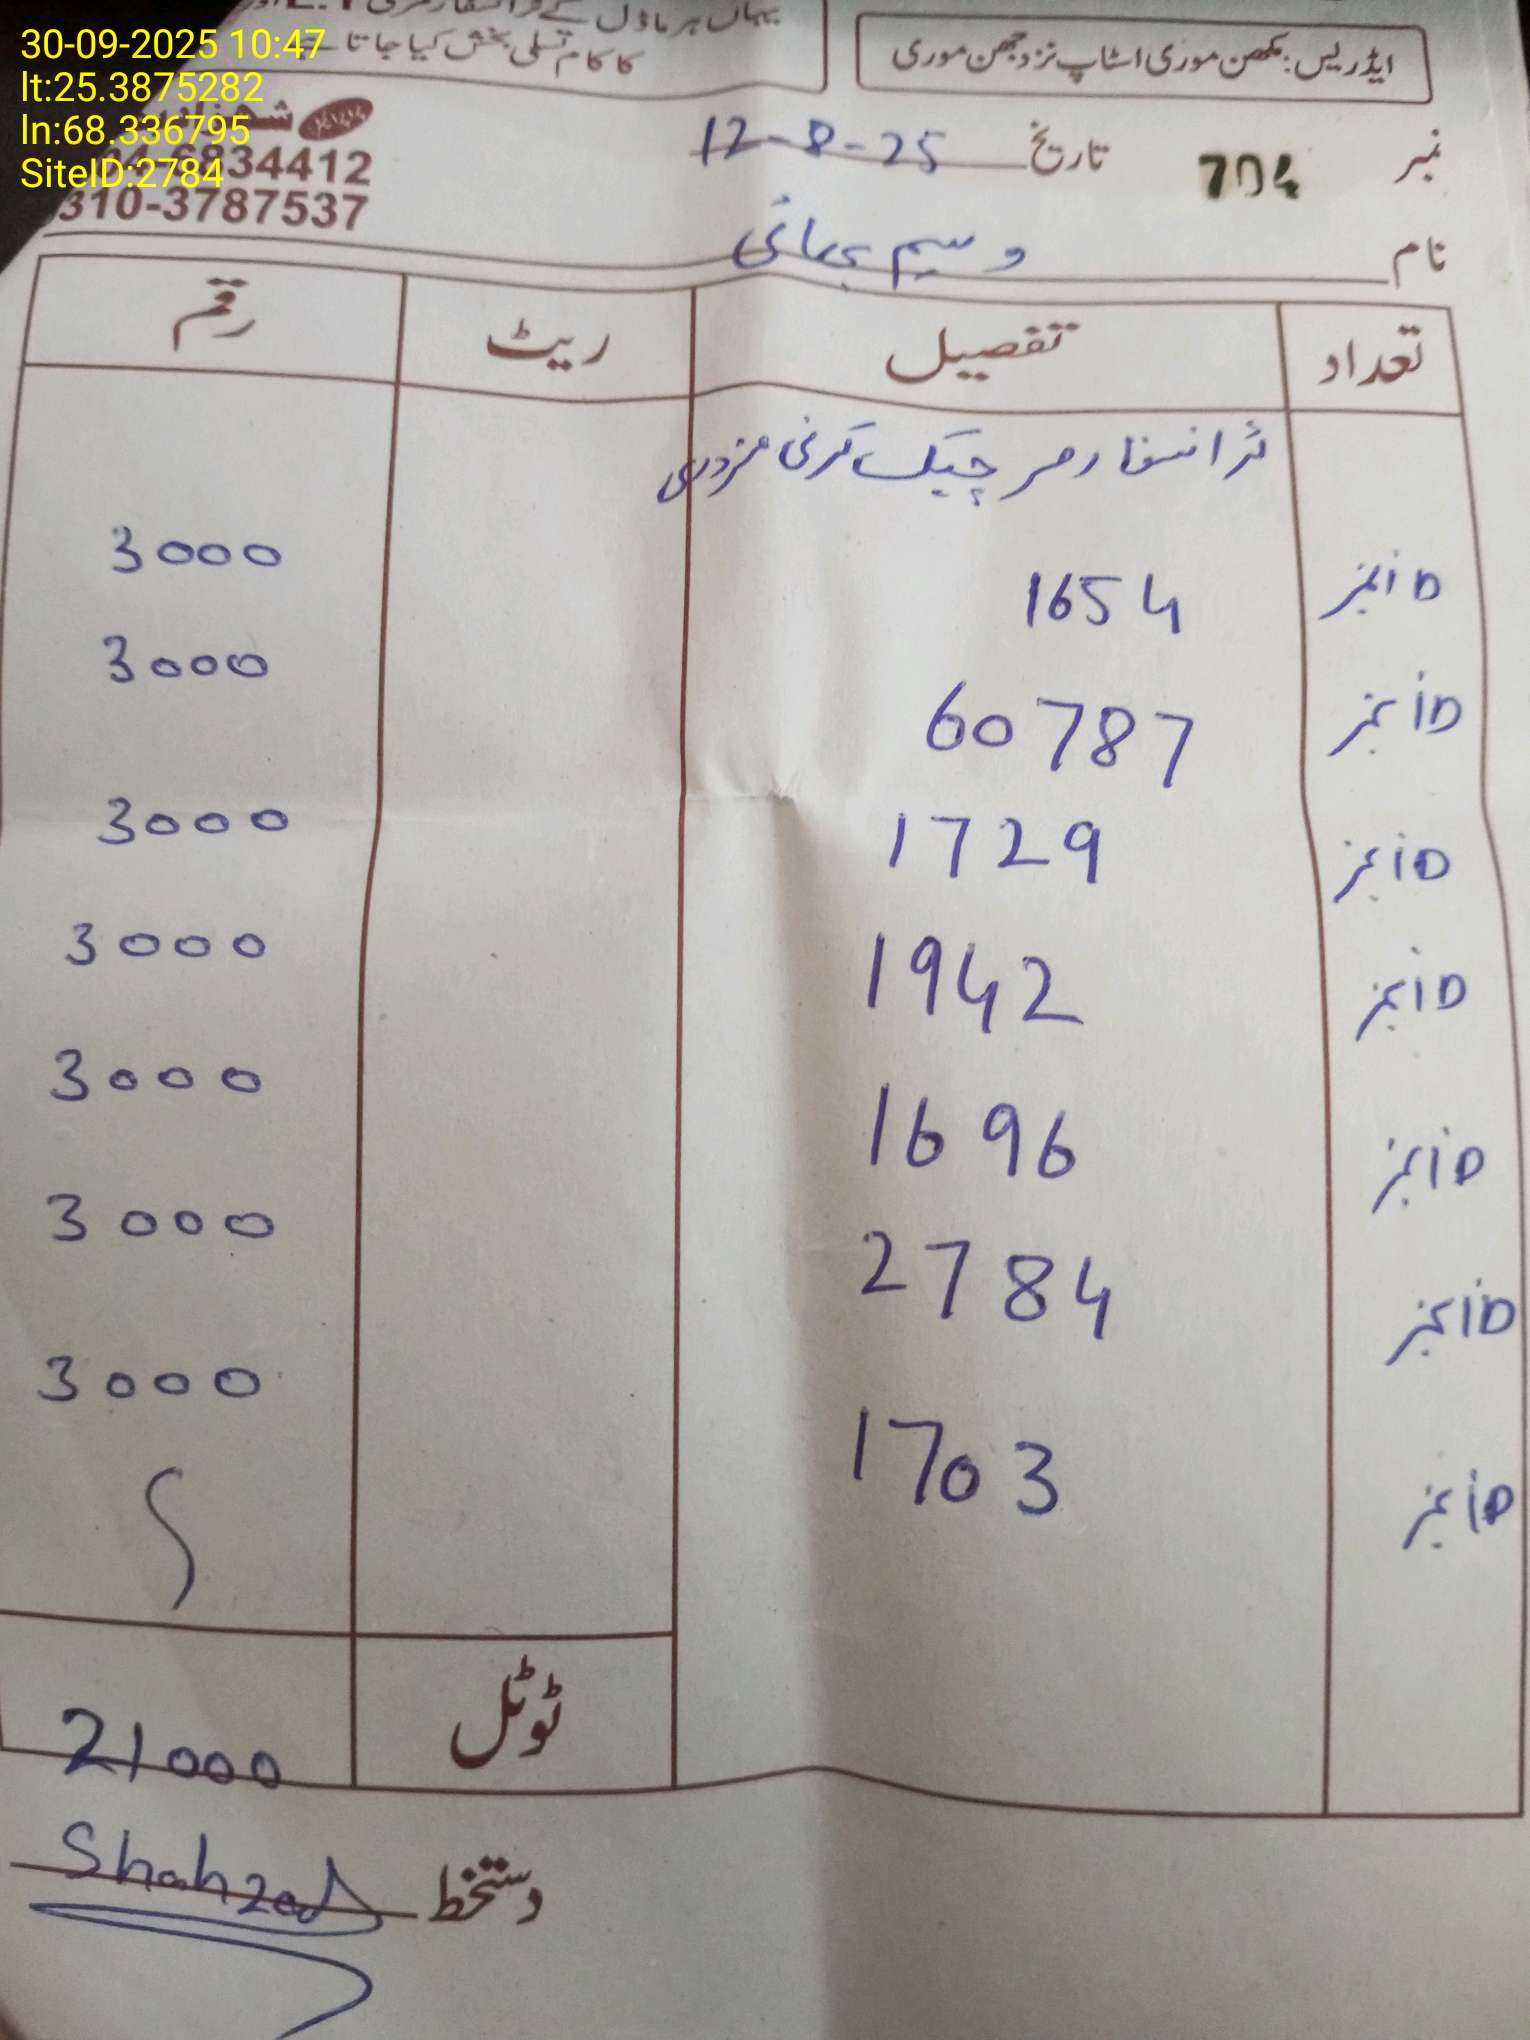 30-09-2025 10:47
lt:25.3875282
ln:68.336795
SiteID:2784
یہاں ہر ماڈل کے
کا کام تسلی بخش کیا جاتا ہے
ایڈریس: مکھن موری اسٹاپ نزد جھن موری
34412
310-3787537
نمبر 704 تاریخ 12-8-25
نام وسیم بھائی
تعداد تفصیل ریٹ رقم
ٹرانسفارمر چیک کرنی مزدوری
iD نمبر 1654 3000
iD نمبر 60787 3000
iD نمبر 1729 3000
iD نمبر 1942 3000
iD نمبر 1696 3000
iD نمبر 2784 3000
iD نمبر 1703 3000
ٹوٹل 21000
دستخط Shahzad